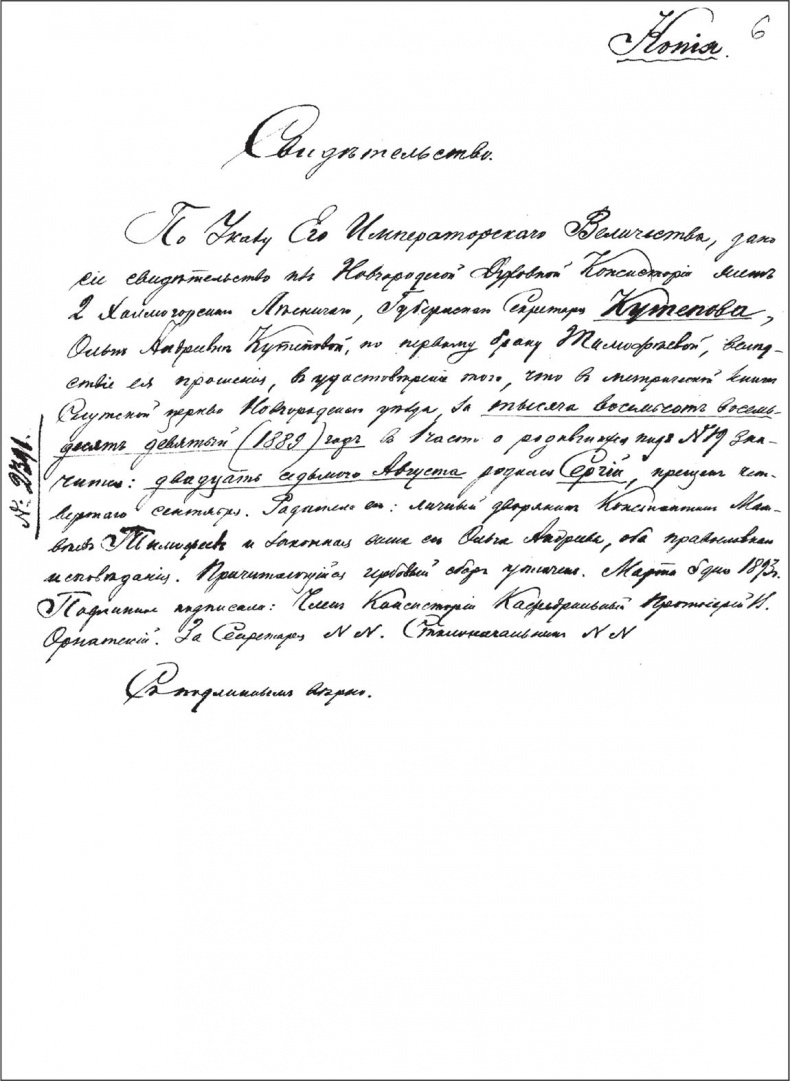 Копія. 6
Свидѣтельство.
По Указу Его Императорскаго Величества, дано
сіе свидѣтельство изъ Новгородской Духовной Консисторіи женѣ
2 Холмогорскаго Лѣсничаго, Губернскаго Секретаря Кутепова,
Ольгѣ Андреевнѣ Кутеповой, по первому браку Тимофеевой, вслѣд-
ствіе ея прошенія, въ удостовѣреніе того, что въ метрической книгѣ
Слутской церкви Новгородскаго уѣзда, за тысяча восемьсотъ восемь-
десятъ девятый (1889) годъ въ 1 части о родившихся подъ № 19 зна-
чится: двадцать седьмого Августа родился Сергій, крещенъ чет-
вертаго сентября. Родители его: личный дворянинъ Константинъ Мат-
вѣевъ Тимофеевъ и законная жена его Ольга Андреева, оба православнаго
исповѣданія. Причитающійся гербовый сборъ уплаченъ. Марта 8 дня 1893 г.
Подлинное подписали: Членъ Консисторіи Кафедральный Протоіерей
Орнатскій. За Секретаря N N. Столоначальникъ N N
Съ подлиннымъ вѣрно.
№: 2391.